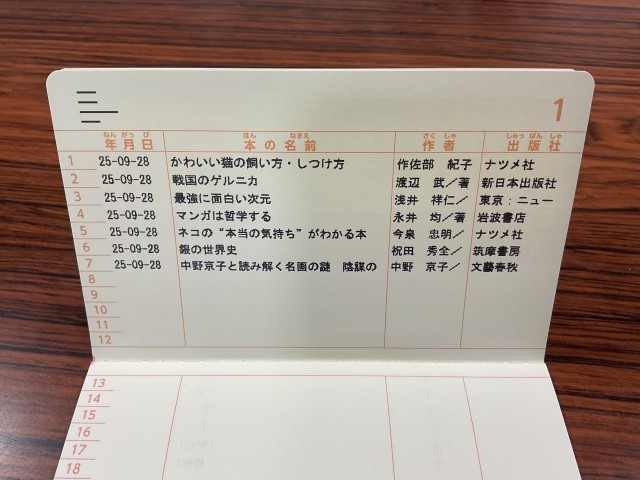 1
ねん がっ び ほん なまえ さく しゃ しゅっ ぱん しゃ
年月日 本の名前 作者 出版社
1 25-09-28 かわいい猫の飼い方・しつけ方 作佐部 紀子 ナツメ社
2 25-09-28 戦国のゲルニカ 渡辺 武／著 新日本出版社
3 25-09-28 最強に面白い次元 浅井 祥仁／ 東京：ニュー
4 25-09-28 マンガは哲学する 永井 均／著 岩波書店
5 25-09-28 ネコの“本当の気持ち”がわかる本 今泉 忠明／ ナツメ社
6 25-09-28 銀の世界史 祝田 秀全／ 筑摩書房
7 25-09-28 中野京子と読み解く名画の謎 陰謀の 中野 京子／ 文藝春秋
8
9
10
11
12
13
14
15
16
17
18